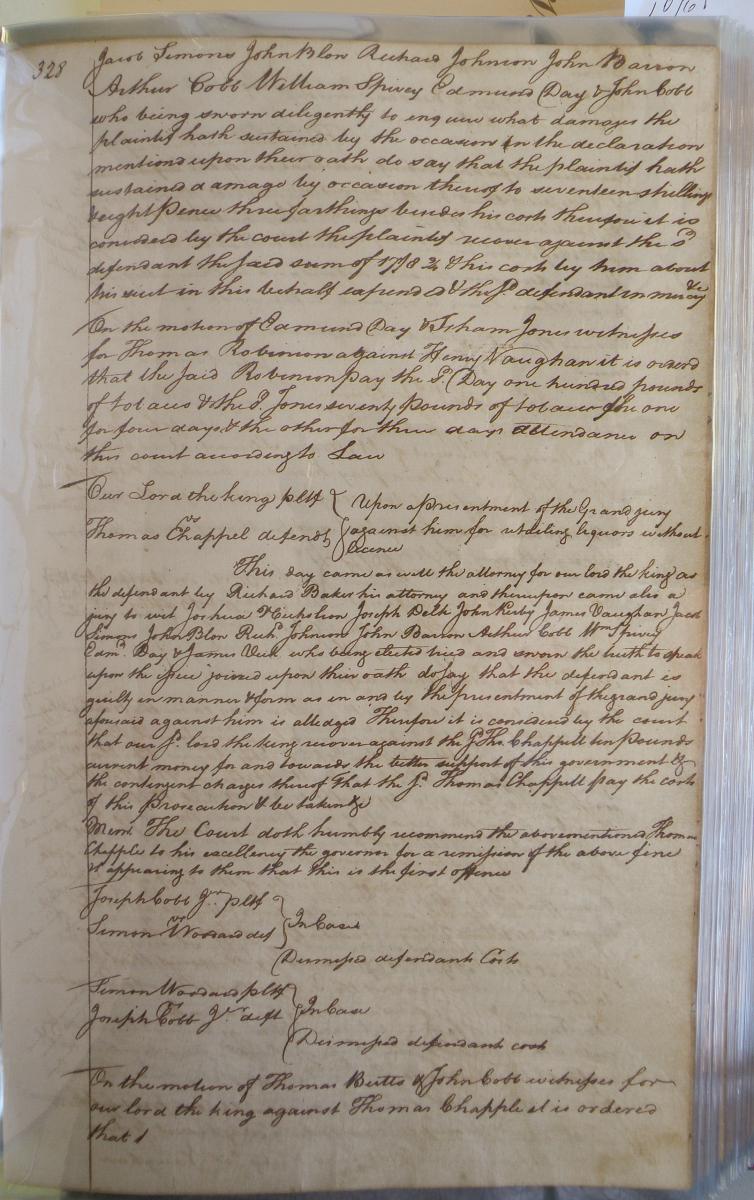 328
Jacob Simons John Blow Richard Johnson John Barron
Arthur Cobb William Spivey Edmund Day & John Cobb
who being sworn diligently to enquire what damages the
plaintif hath sustained by the occasion in the declaration
mentiond upon their oath do say that the plaintif hath
sustained damage by occasion thereof to seventeen shillings
& eight Pence three farthings besides his costs therefore it is
considered by the court the plaintif recover against the sd
defendant the said sum of 17/8 ¾ & his costs by him about
his suit in this behalf expended & the sd defendant in mercy &c
On the motion of Edmund Day & Isham Jones witnesses
for Thomas Robinson against Henry Vaughan it is orderd
that the said Robinson pay the sd. Day one hundred pounds
of tobacco & the sd. Jones seventy pounds of tobacco the one
for four days & the other for three days attendance on
this court according to Law
Our Lord the king pltf
vs
Thomas Chappel defendt
Upon a Presentment of the Grand jury
against him for retaileing liquors without
licence
This day came as well the attorney for our lord the king as
the defendant by Richard Baker his attorney and thereupon came also a
jury to wit Joshua Nicholson Joseph Delk John Kirby James Vaughan Jacob
Simons John Blow Richd Johnson John Barron Arthur Cobb Wm Spivey
Edmd. Day & James Vick who being elected tried and sworn the truth to speak
upon the issue joined upon their oath do say that the defendant is
guilty in manner & form as in and by the presentment of the grand jury
aforesaid against him is alledged Therefore it is considered by the court
that our sd. lord the king recover against the sd Tho. Chappell ten Pounds
current money for and towards the better support of this government &
the contingent charges thereof That the sd. Thomas Chappell pay the costs
of this Prosecution & be taken &c
Mem. The Court doth humbly recommend the abovementioned Thomas
Chapple to his excellency the governor for a remission of the above fine
it appearing to them that this is the first offence
Joseph Cobb Jr. pltf
vs
Simon Woodard def
In Case
Dismissed defendants Costs
Simon Woodard pltf
vs
Joseph Cobb Jr deft
In Case
Dismissed defendants cost
On the motion of Thomas Butts & John Cobb witnesses for
our lord the king against Thomas Chapple it is ordered
that